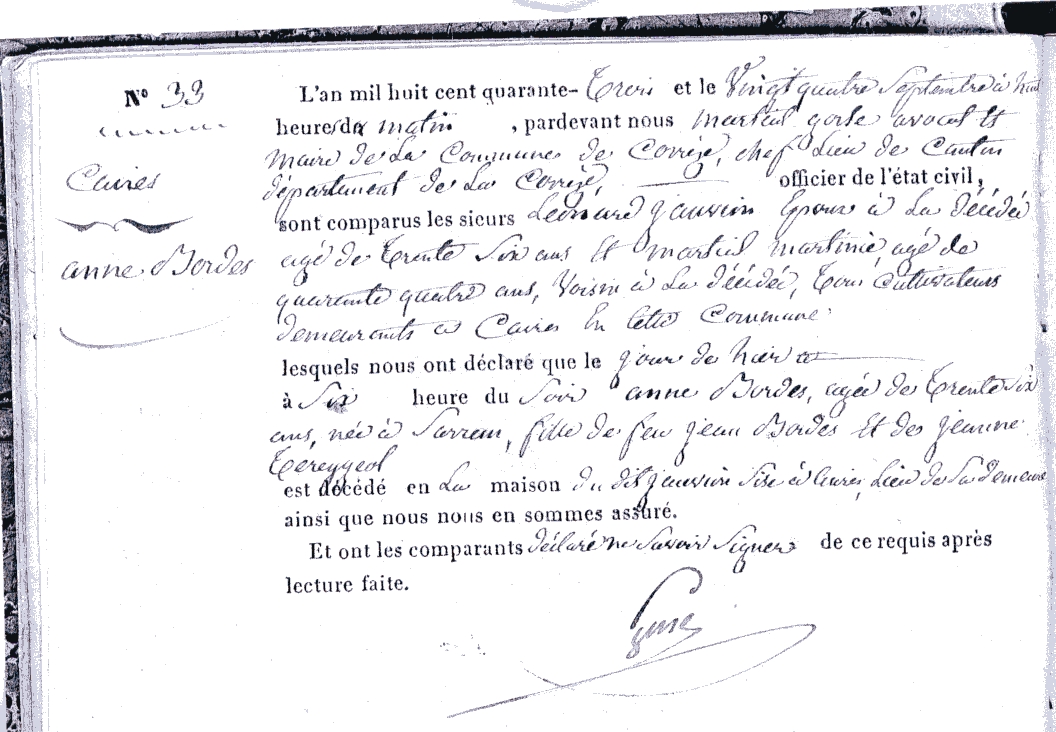 N° 33
Caires
anne Bordes
L'an mil huit cent quarante-Trois et le Vingt quatre Septembre à huit
heures du matin, pardevant nous martial gorse avocat et
maire de La Commune de Corrèze, chef Lieu de Canton
département de La Corrèze, officier de l'état civil,
sont comparus les sieurs Léonard Epoux à La décédée
agé de Trente Six ans Et martial martinie, agé de
quarante quatre ans, Voisin à La décédée, Tous Cultivateurs
demeurants à Caires En cette Commune
lesquels nous ont déclaré que le jour de hier
à Six heure du Soir anne Bordes, agée de Trente Six
ans, née à Sarran, fille de feu jean Bordes Et de jeanne
est décédé en La maison du dit Sise à Caires, Lieu de Sa demeure
ainsi que nous nous en sommes assuré.
Et ont les comparants déclaré ne Savoir Signer de ce requis après
lecture faite.